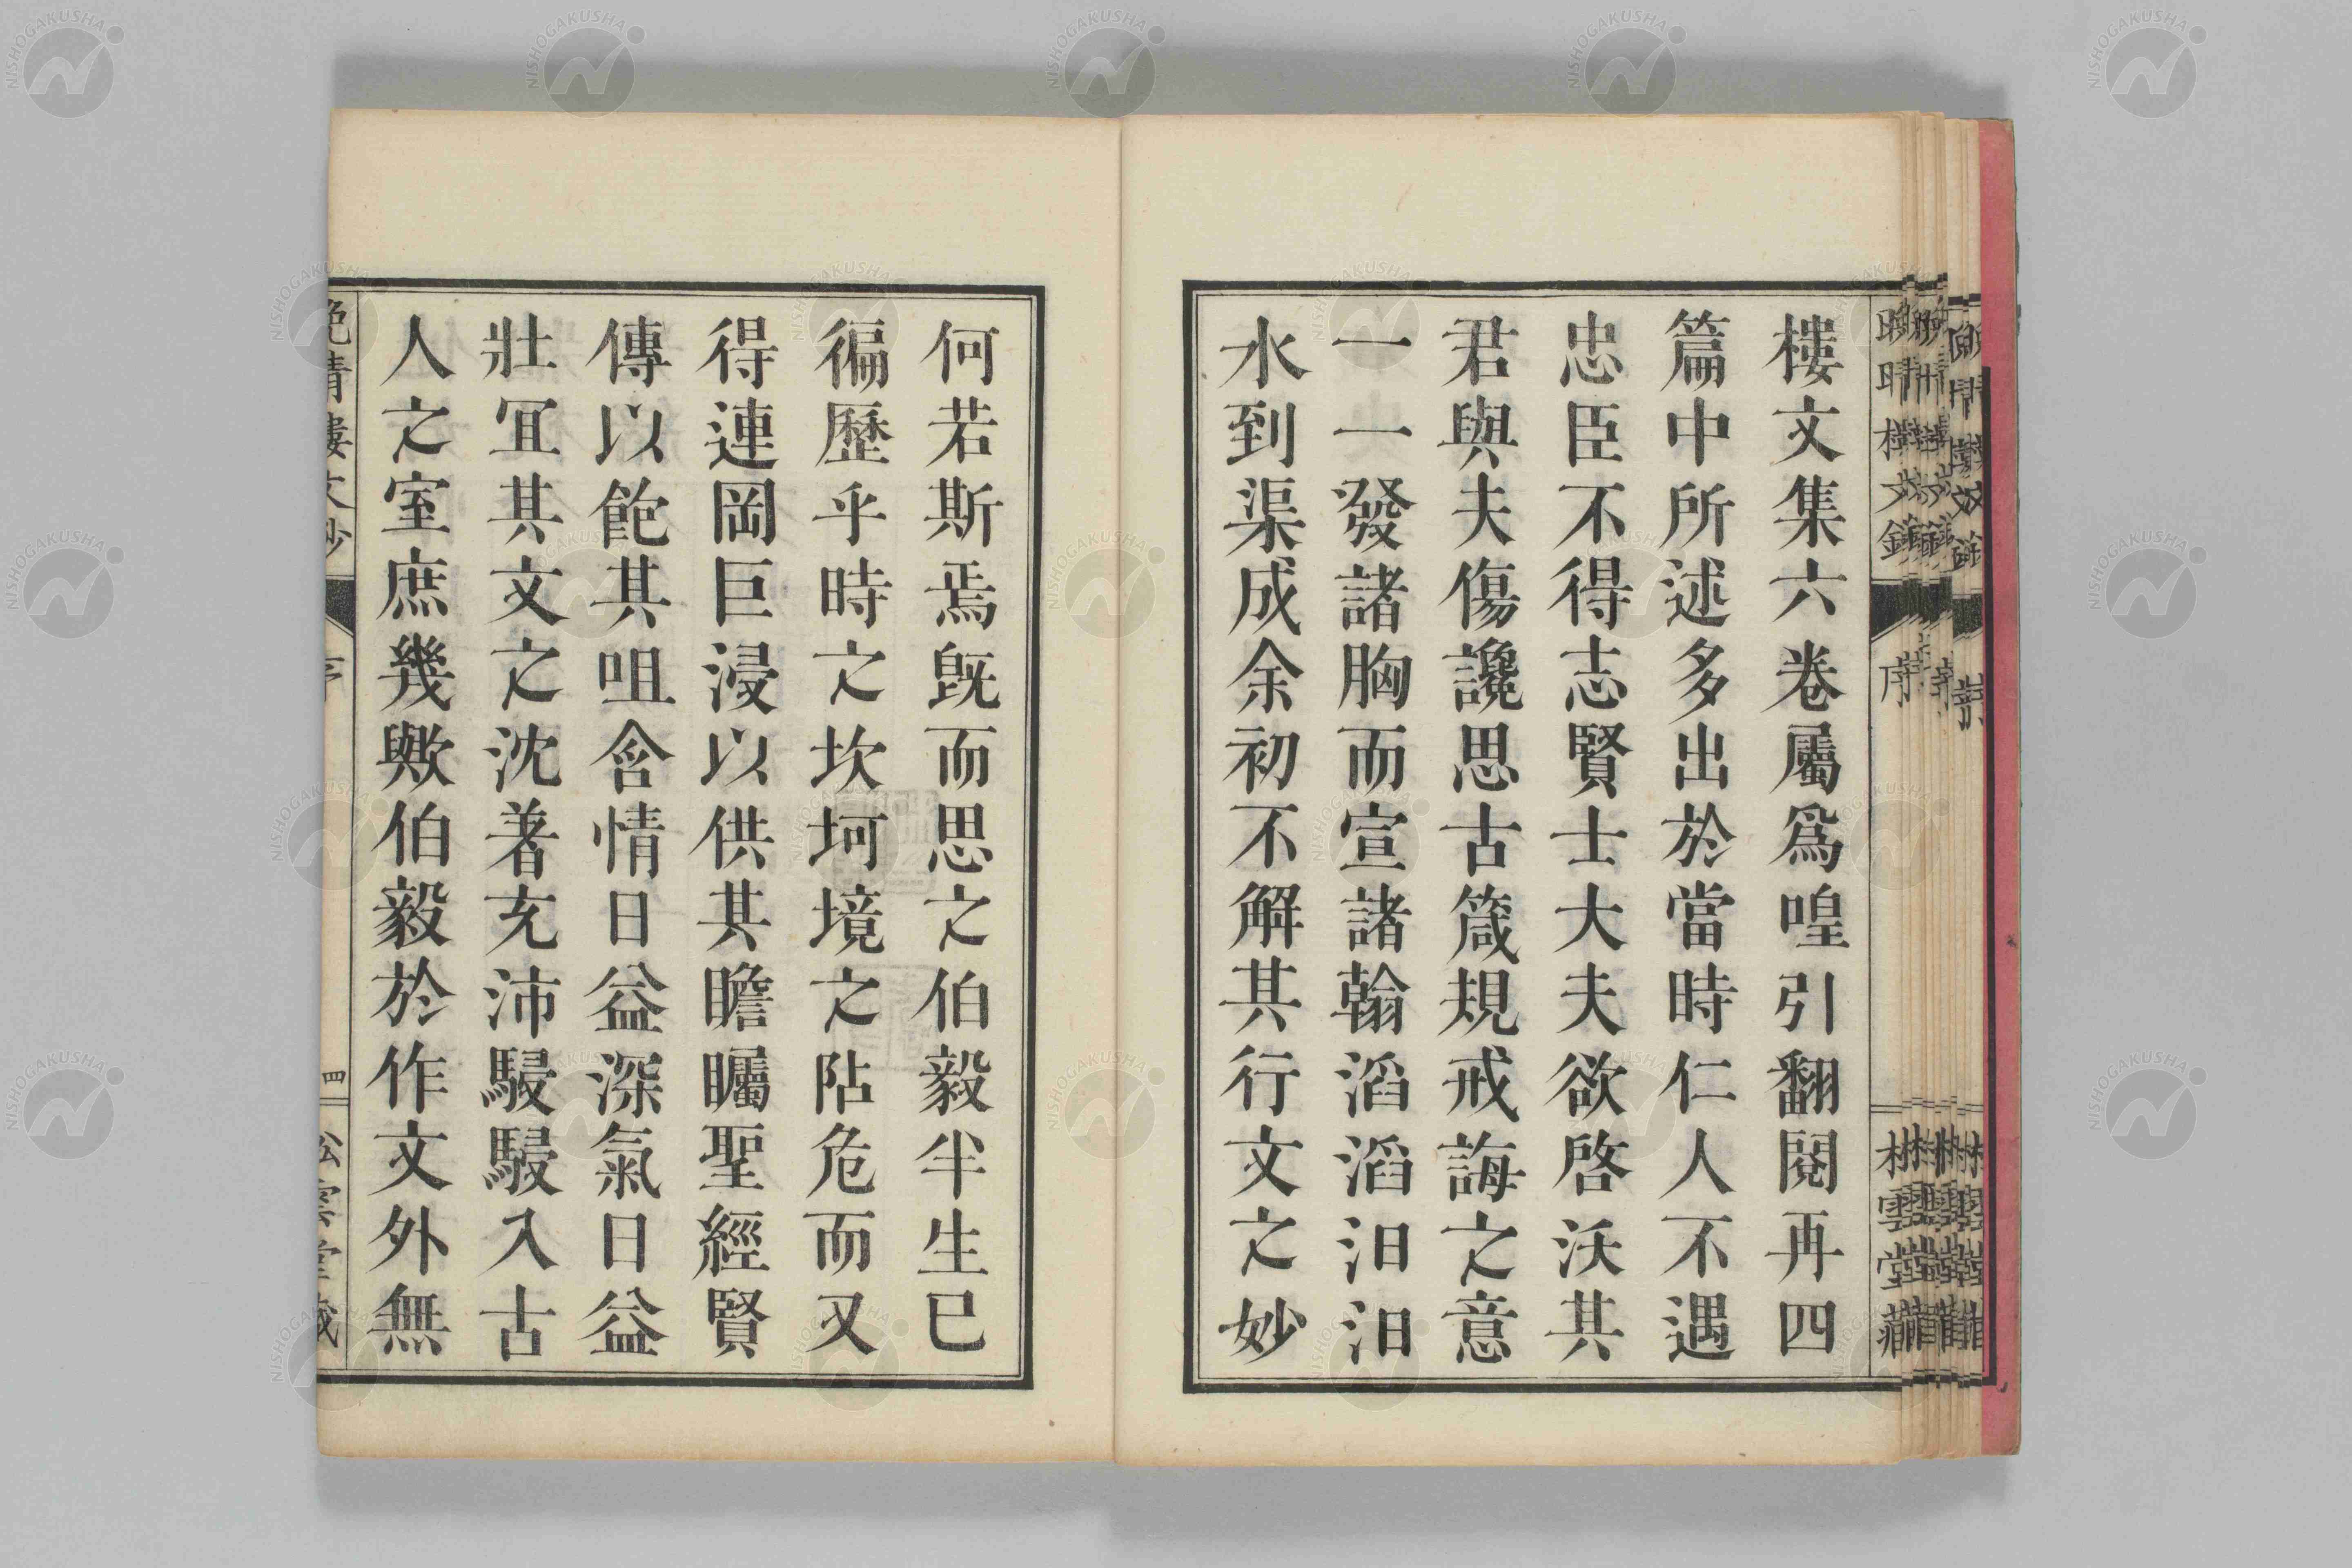 樓文集六卷屬爲喤引翻閱再四
篇中所述多出於當時仁人不遇
忠臣不得志賢士大夫欲啓沃其
君與夫傷讒思古箴規戒誨之意
一一發諸胸而宣諸翰滔滔汨汨
水到渠成余初不解其行文之妙
何若斯焉旣而思之伯毅半生已
徧歷乎時之坎坷境之阽危而又
得連岡巨浸以供其瞻矚聖經賢
傳以飽其咀含情日益深氣日益
壯宜其文之沈著充沛駸駸入古
人之室庶幾歟伯毅於作文外無
晚晴樓文鈔
四
松雲堂藏
NISHOGAKUSHA